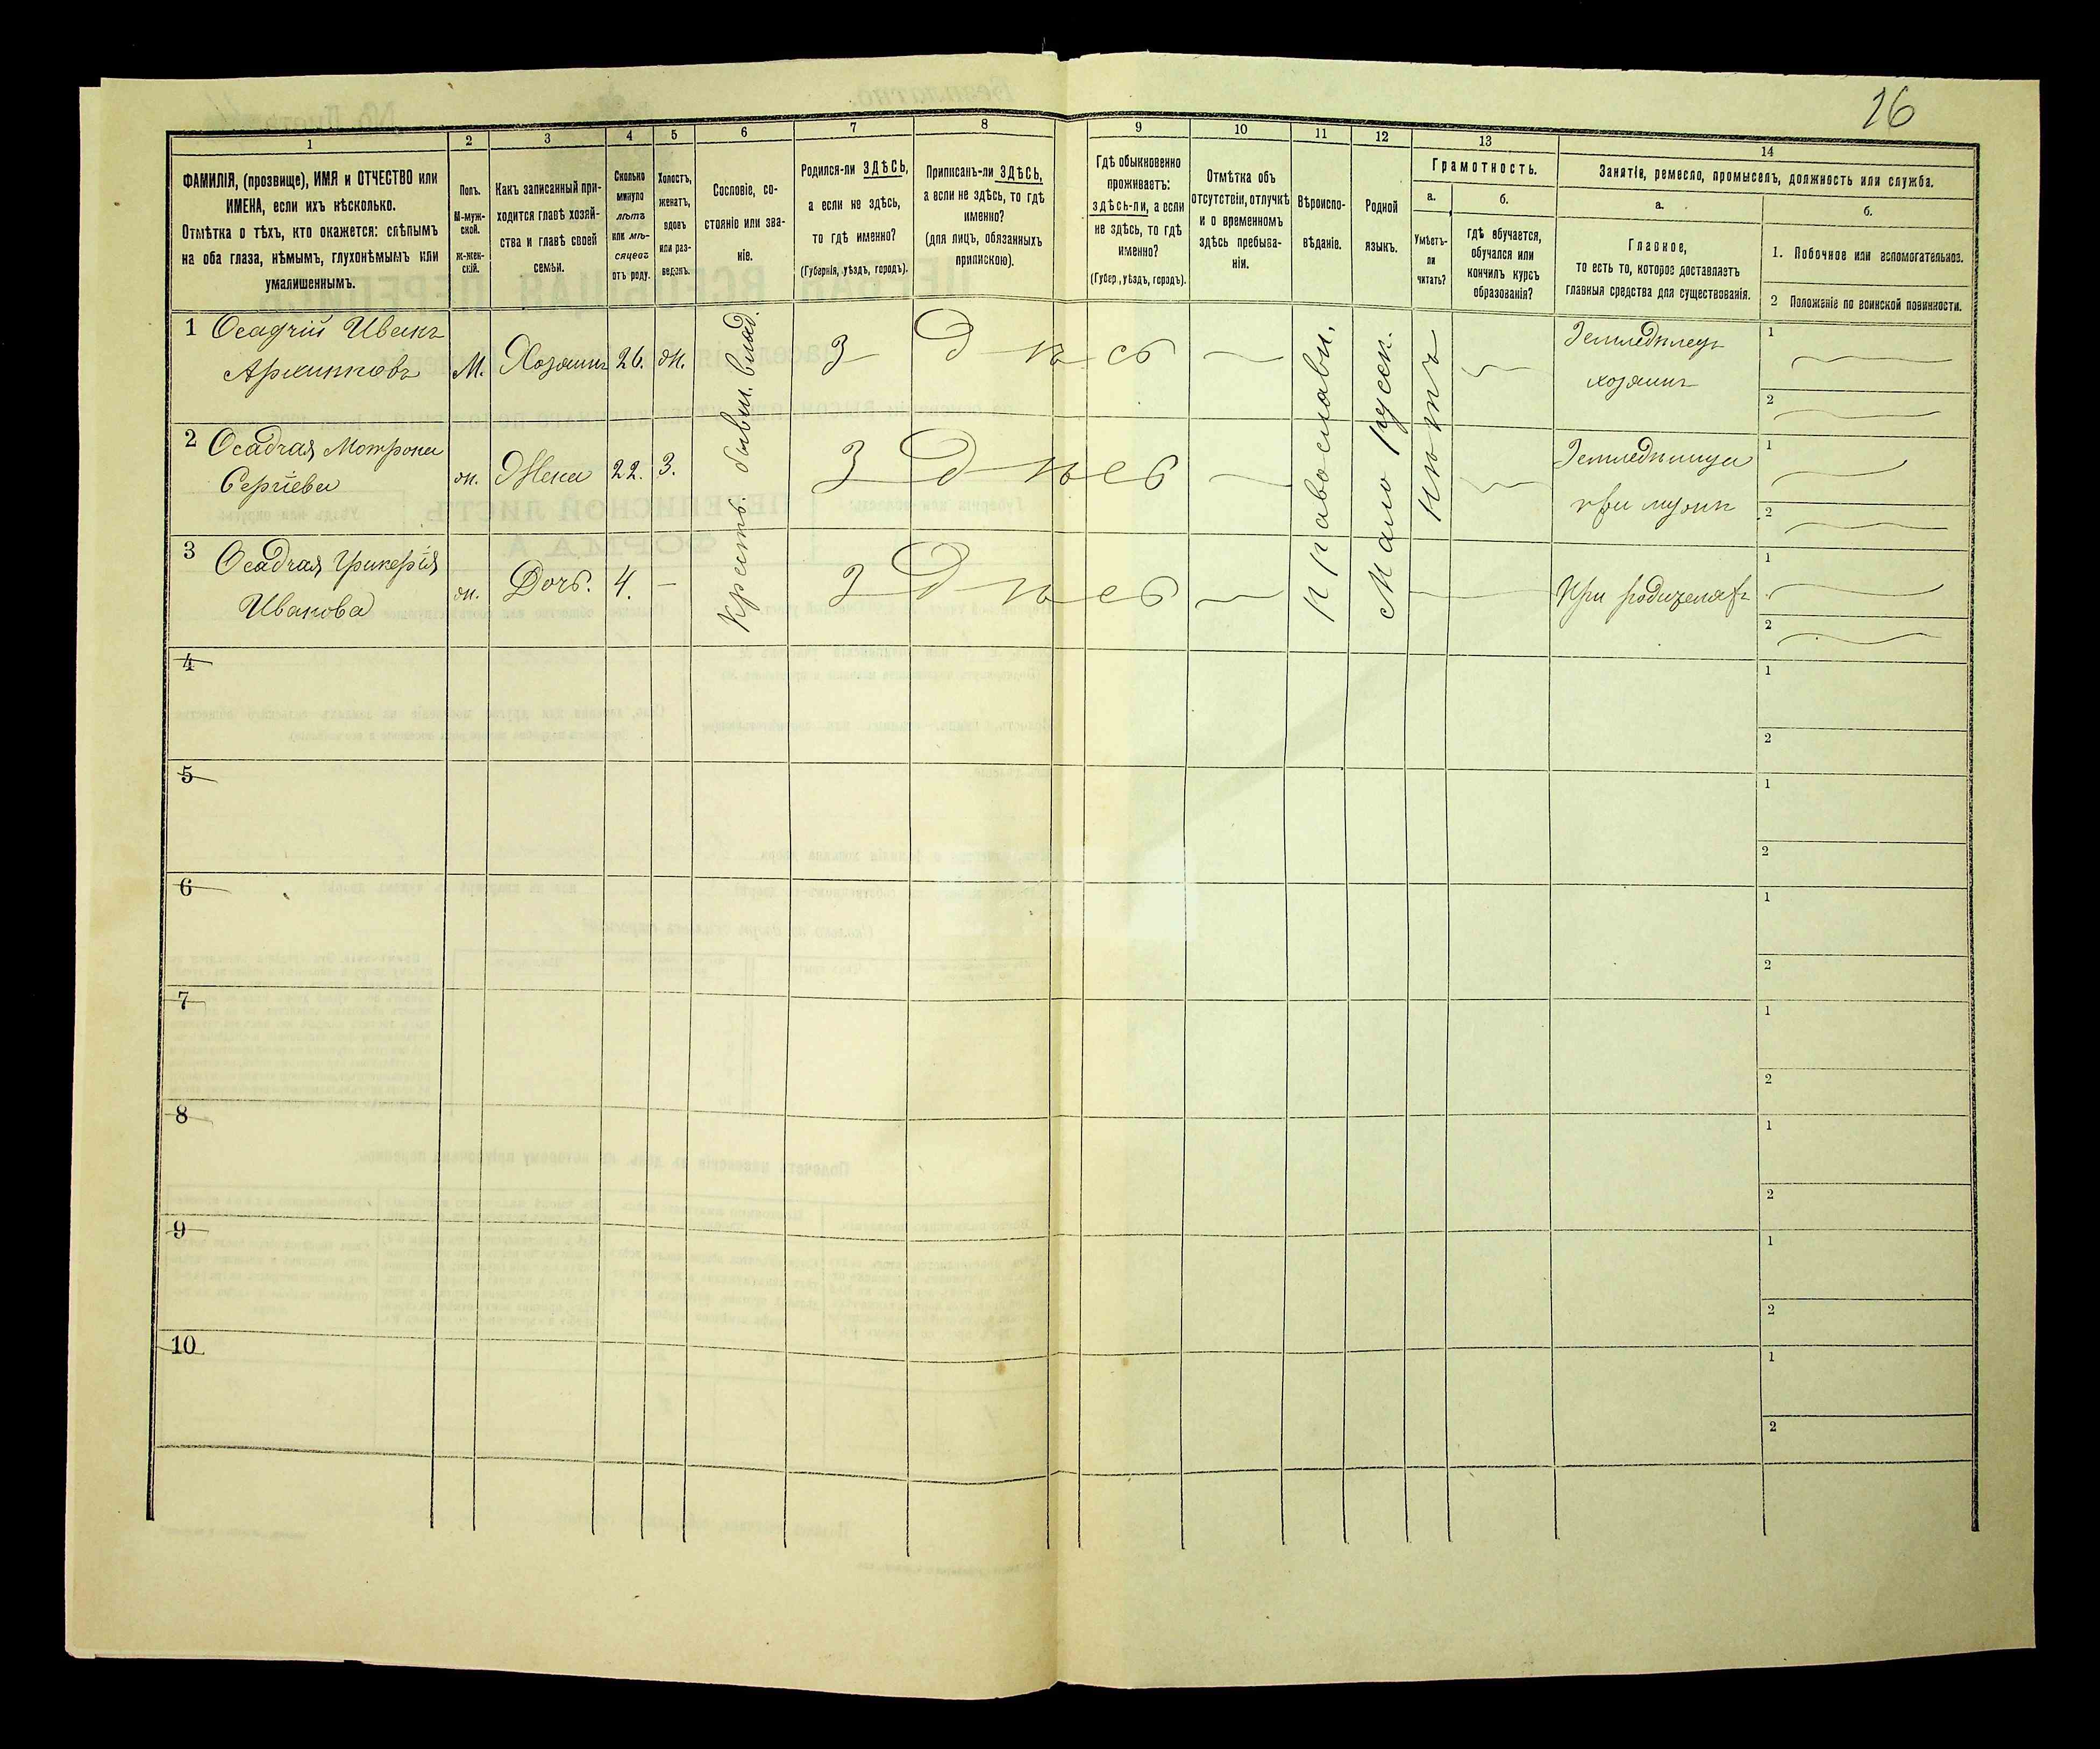 16
1
2
3
4
5
6
7
8
9
10
11
12
13
14
ФАМИЛІЯ, (прозвище), ИМЯ и ОТЧЕСТВО или
ИМЕНА, если ихъ нѣсколько.
Отмѣтка о тѣхъ, кто окажется: слѣпымъ
на оба глаза, нѣмымъ, глухонѣмымъ или
умалишеннымъ.
Полъ.
М-муж-
ской.
Ж-жен-
скій.
Какъ записанный при-
ходится главѣ хозяй-
ства и главѣ своей
семьи.
Сколько
минуло
лѣтъ
или мѣ-
сяцевъ
отъ роду.
Холостъ,
женатъ,
вдовъ
или раз-
веденъ.
Сословіе, со-
стояніе или зва-
ніе.
Родился-ли ЗДѢСЬ,
а если не здѣсь,
то гдѣ именно?
(Губернія, уѣздъ, городъ).
Приписанъ-ли ЗДѢСЬ,
а если не здѣсь, то гдѣ
именно?
(для лицъ, обязанныхъ
припискою).
Гдѣ обыкновенно
проживаетъ:
здѣсь-ли, а если
не здѣсь, то гдѣ
именно?
(Губер., уѣздъ, городъ).
Отмѣтка объ
отсутствіи, отлучкѣ
и о временномъ
здѣсь пребыва-
ніи.
Вѣроиспо-
вѣданіе.
Родной
языкъ.
Грамотность.
а.
Умѣетъ-
ли
читать?
б.
гдѣ обучается,
обучался или
кончилъ курсъ
образованія?
Занятіе, ремесло, промыселъ, должность или служба.
а.
Главное,
то есть то, которое доставляетъ
главныя средства для существованія.
б.
1. Побочное или вспомогательное.
2 Положеніе по воинской повинности.
1 Осадчій Иванъ
Архиповъ
М.
Хозяинъ
26.
ж.
Крестья. бывш. влад.
З д ѣ сь
Православн.
Мало русск.
Нѣтъ
Земледѣлецъ
хозяинъ
1
2
2 Осадчая Мотрона
Сергіева
ж.
Жена
22.
З.
З д ѣ сь
Земледѣлица
при мужѣ
1
2
3 Осадчая Гликерія
Иванова
ж.
Дочь.
4.
З д ѣ сь
При родителяхъ
1
2
4
1
2
5
1
2
6
1
2
7
1
2
8
1
2
9
1
2
10
1
2